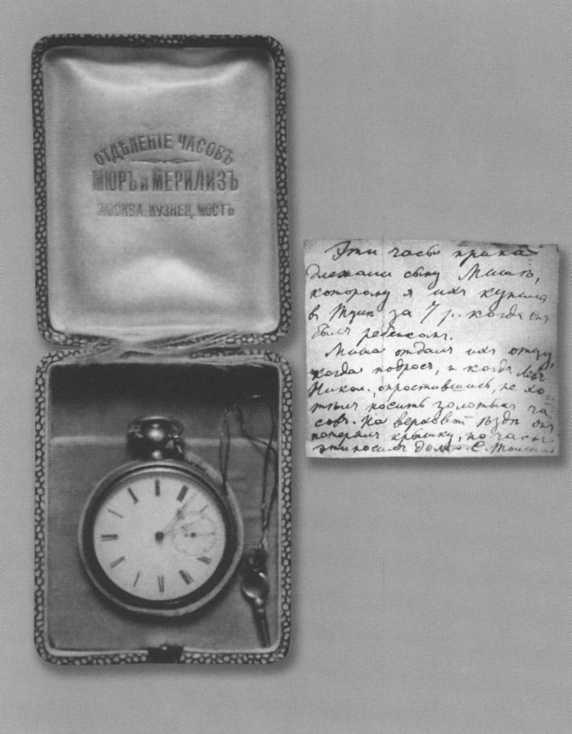 ОТДѢЛЕНІЕ ЧАСОВЪ
МЮРЪ и МЕРИЛИЗЪ
МОСКВА, КУЗНЕЦ. МОСТЪ
Эти часы принад
лежали сыну Мишѣ,
которому я ихъ купила
в Тулѣ за 7 р. когда онъ
былъ ребенкомъ.
Миша отдалъ ихъ отцу,
когда подросъ, и когда Левъ
Никол. опростившись, не хо
тѣлъ носить золотыхъ ча
совъ. На верховой ѣздѣ онъ
потерялъ крышку, но часы
эти носилъ долго. С. Толстая